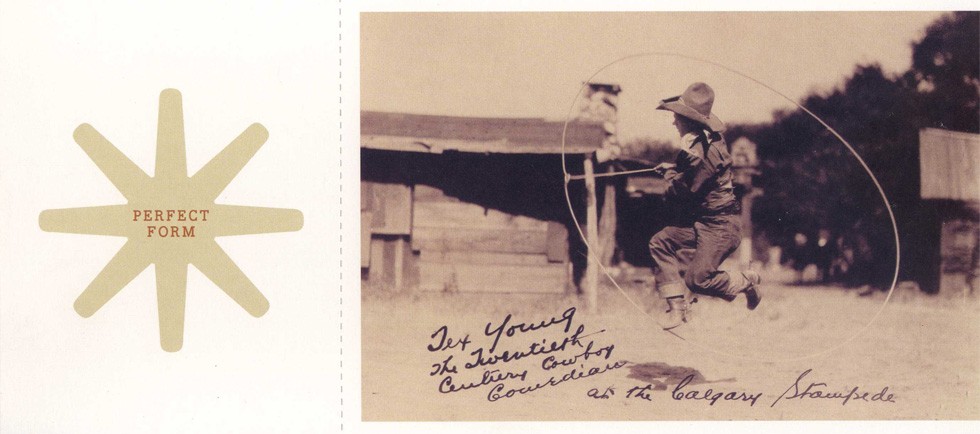 PERFECT
FORM
Tex Young
The Twentieth
Century Cowboy
Comedian
at the Calgary Stampede